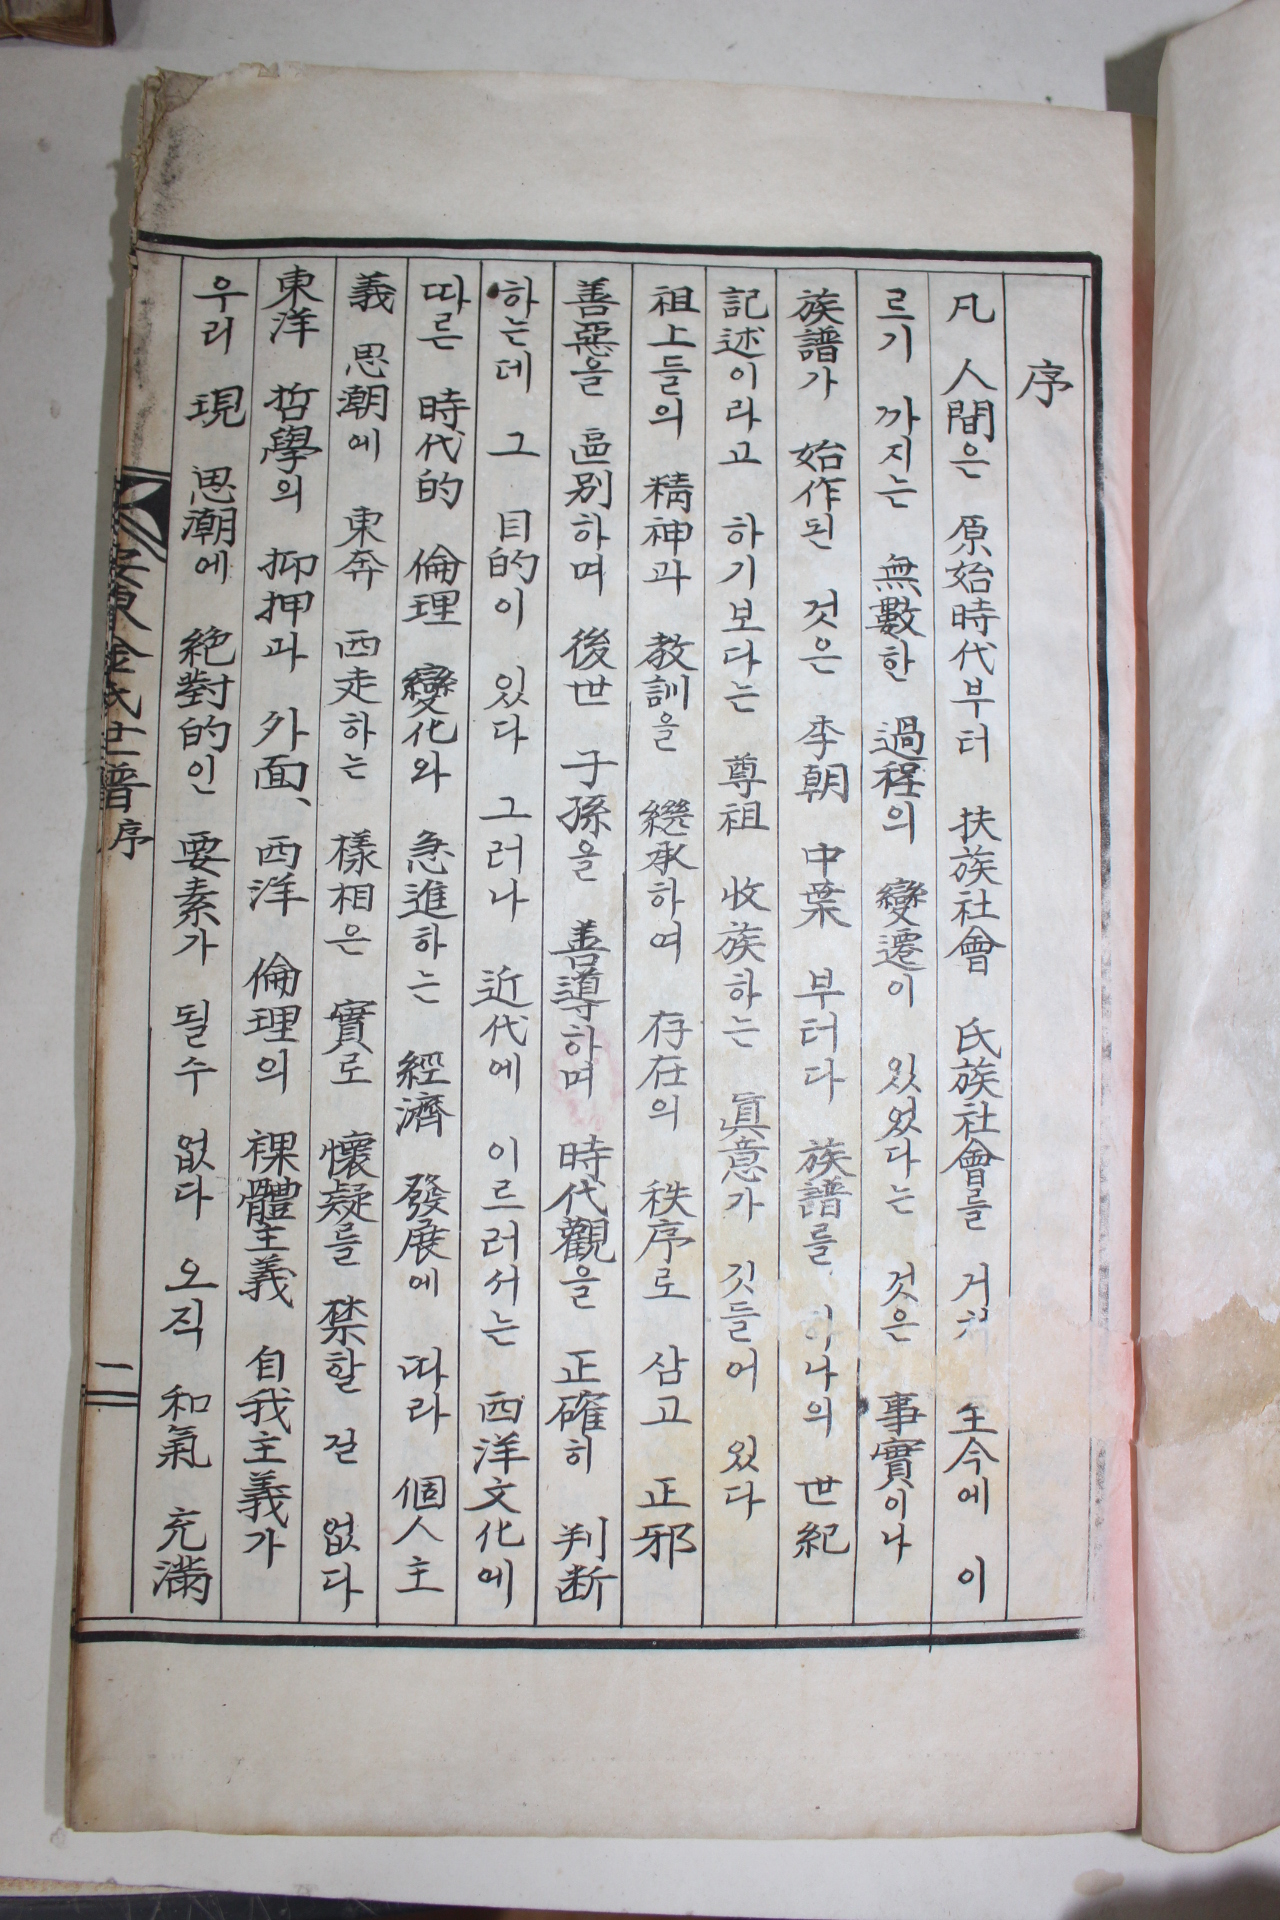 序
凡 人間은 原始時代부터 扶族社會 氏族社會를 거쳐 至今에 이
르기 까지는 無數한 過程의 變遷이 있었다는 것은 事實이나
族譜가 始作된 것은 李朝 中葉 부터다 族譜를 하나의 世紀
記述이라고 하기보다는 尊祖 收族하는 眞意가 깃들어 있다
祖上들의 精神과 教訓을 繼承하여 存在의 秩序로 삼고 正邪
善惡을 區別하며 後世 子孫을 善導하며 時代觀을 正確히 判断
하는데 그 目的이 있다 그러나 近代에 이르러서는 西洋文化에
따른 時代的 倫理 變化와 急進하는 經濟 發展에 따라 個人主
義 思潮에 東奔 西走하는 樣相은 實로 懷疑를 禁할 길 없다
東洋 哲學의 抑押과 外面、 西洋 倫理의 裸體主義 自我主義가
우리 現 思潮에 絶對的인 要素가 될수 없다 오직 和氣 充滿
金氏世譜 序
一